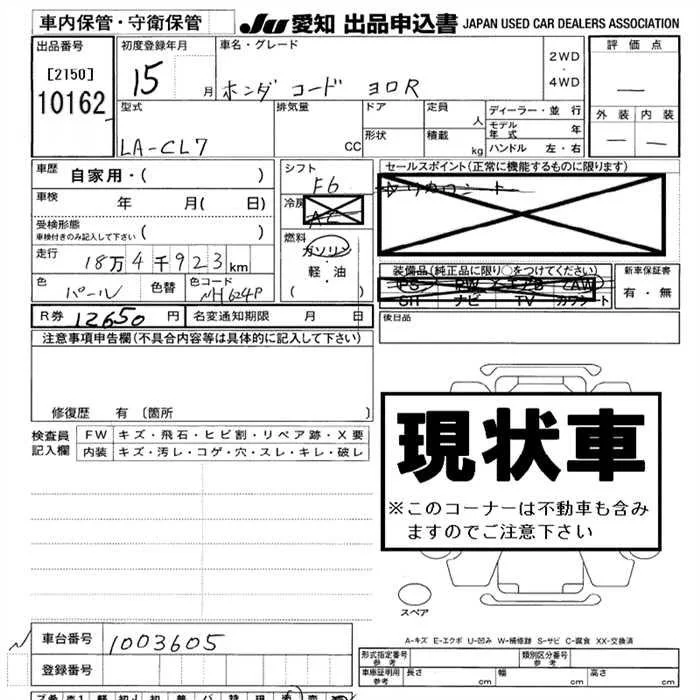 車内保管・守衛保管 JU 愛知 出品申込書 JAPAN USED CAR DEALERS ASSOCIATION
出品番号 初度登録年月 車名・グレード 評価点
[2150] 15 月 ホンダ コード ヨロR 2WD・4WD —
10162
型式 排気量 ドア 定員 人 ディーラー・並行 外装 内装
モデル年式 年
LA-CL7 CC 形状 積載 kg ハンドル 左・右 — —
車歴 自家用・( ) シフト F6 セールスポイント(正常に機能するものに限ります)
車検 年 月( 日) 冷房 AC
受検形態 車検付きのみ記入して下さい ( ) 燃料 ガソリン・軽・油 ( )
走行 18万4千923km 装備品(純正品に限り○をつけてください) 新車保証書
PS PW エアB AW
色 パール 色替 色コード NH624P SH ナビ TV カワシート 有・無
R券 12650 円 名変通知期限 月 日 後日品
注意事項申告欄(不具合内容等は具体的に記入して下さい)
修復歴 有〔箇所 〕
現状車
※このコーナーは不動車も含み
ますのでご注意下さい
検査員記入欄 FW キズ・飛石・ヒビ割・リペア跡・X要
内装 キズ・汚レ・コゲ・穴・スレ・キレ・破レ
スペア
A-キズ E-エクボ U-凹み W-補修跡 S-サビ C-腐食 XX-交換済
車台番号 1003605
形式指定番号 参考 類別区分番号 参考
登録番号 車庫証明用 参考 長さ cm 幅 cm 高さ cm